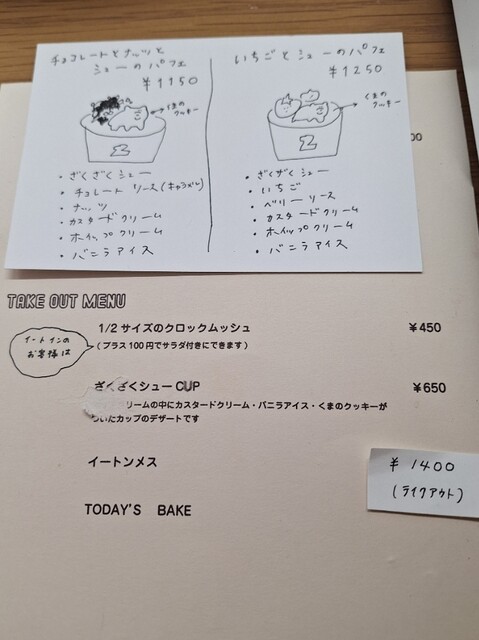 チョコレートとナッツと
シューのパフェ
¥1150
くまの
クッキー
・ざくざくシュー
・チョコレートソース(キャラメル)
・ナッツ
・カスタードクリーム
・ホイップクリーム
・バニラアイス
いちごとシューのパフェ
¥1250
くまの
クッキー
・ざくざくシュー
・いちご
・ベリーソース
・カスタードクリーム
・ホイップクリーム
・バニラアイス
00
TAKE OUT MENU
イートインの
お客様は
1/2サイズのクロックムッシュ ¥450
(プラス100円でサラダ付きにできます)
ざくざくシューCUP ¥650
リームの中にカスタードクリーム・バニラアイス・くまのクッキーが
いたカップのデザートです
イートンメス
¥1400
(テイクアウト)
TODAY'S BAKE